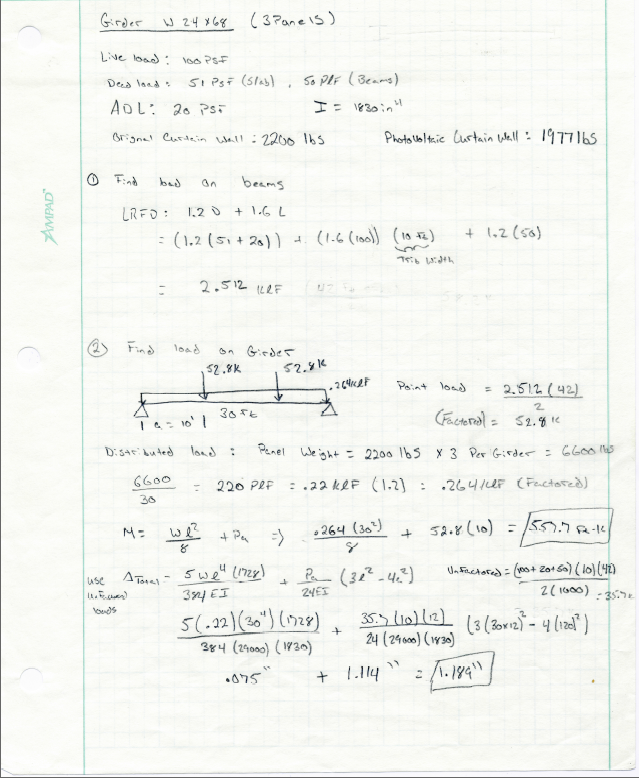 Girder W 24x68 (3 Panels)
Live load: 100 PSF
Dead load: 51 PSF (Slab), 50 PLF (Beams)
ADL: 20 PSF I = 1830 in⁴
Orignal Curtain Wall: 2200 lbs Photovoltaic Curtain Wall: 1977 lbs
① Find load on beams
AMPAD
LRFD: 1.2 D + 1.6 L
= (1.2(51+20)) + (1.6(100)) (10 ft) + 1.2(50)
Trib Width
= 2.512 KLF
② Find load on Girder
52.8K 52.8K
.264KLF
30 ft
a = 10'
Point load = 2.512(42)/2
(Factored) = 52.8 K
Distributed load: Panel Weight = 2200 lbs x 3 Per Girder = 6600 lbs
6600/30 = 220 PLF = .22 KLF (1.2) = .264 KLF (Factored)
M = wl²/8 + Pa => .264(30²)/8 + 52.8(10) = 557.7 ft-K
use unfactored loads
Δ Total = 5wl⁴(1728)/384EI + Pa/24EI (3l² - 4a²) Unfactored = (100+20+50)(10)(42)/2(1000) = 35.7K
5(.22)(30⁴)(1728)/384(29000)(1830) + 35.7(10)(12)/24(29000)(1830) (3(30x12)² - 4(120)²)
.075" + 1.114" = 1.189"